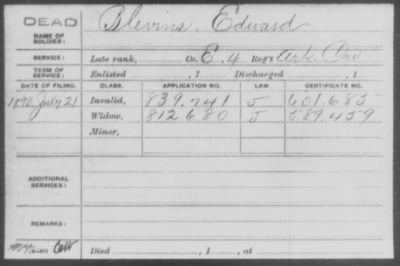 DEAD
Blevins, Edward
NAME OF SOLDIER:
SERVICE: Late rank, Co. E. 4 Reg't Ark Cav
TERM OF SERVICE: Enlisted , 1 Discharged , 1
DATE OF FILING. CLASS. APPLICATION NO. LAW CERTIFICATE NO.
1890, July 21 Invalid, 839.741 J 601.685
Widow, 812680 J 589.459
Minor,
ADDITIONAL SERVICES:
REMARKS:
Died , 1 , at